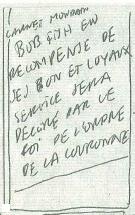 CARNET MONDAIN
BOB FISH EN
RECOMPENSE DE
SES BON ET LOYAUX
SERVICE SERA
DECORE PAR LE
ROI DE L'ORDRE
DE LA COURONNE